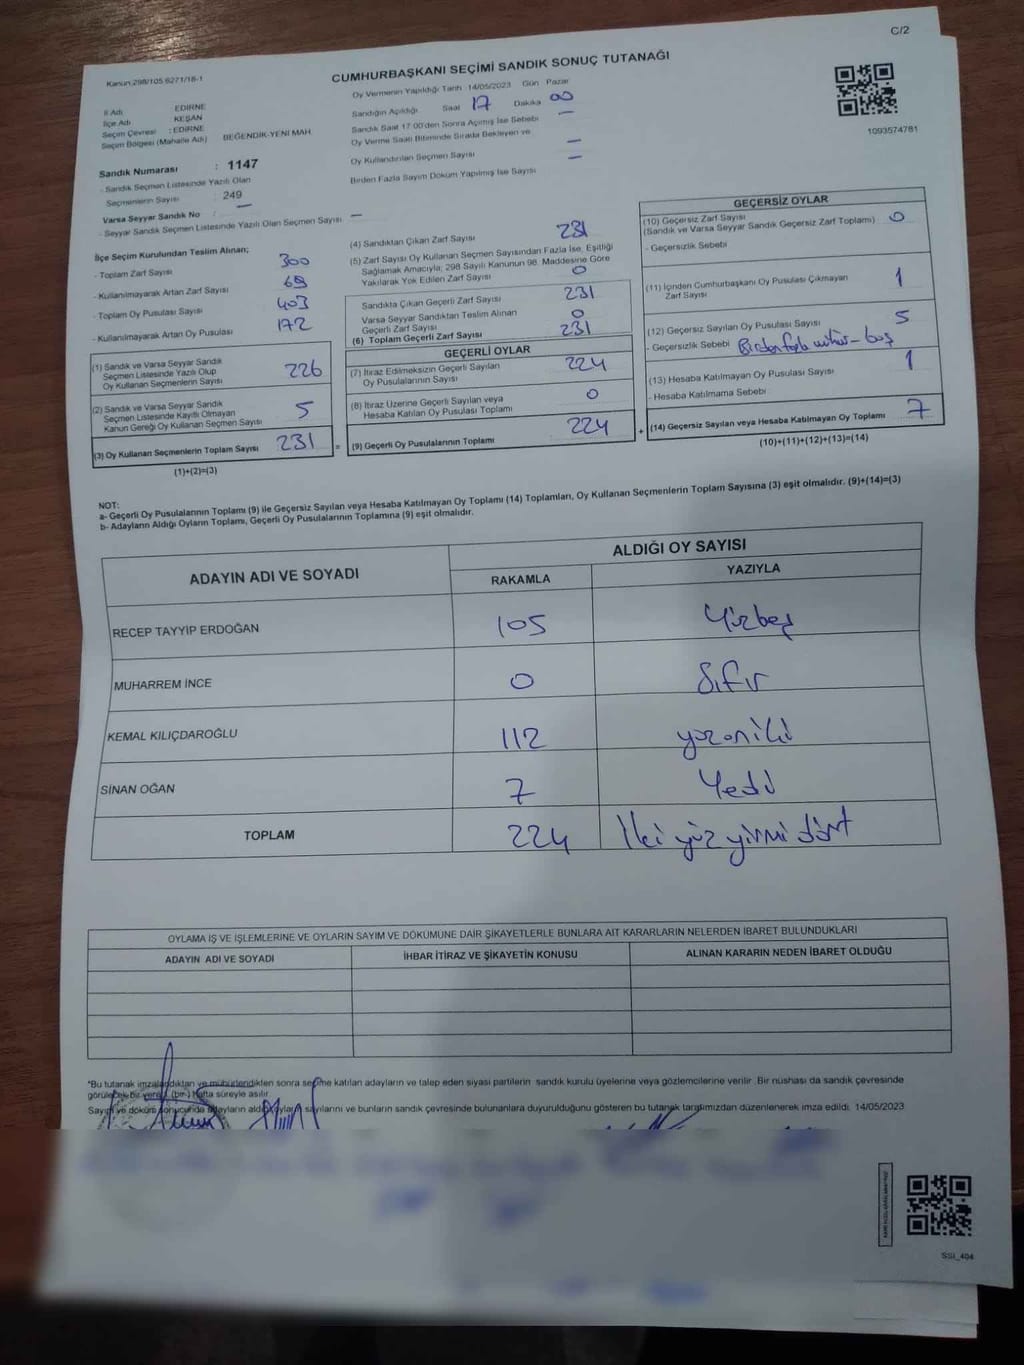 C/2
Kanun 298/105 6271/18-1
CUMHURBAŞKANI SEÇİMİ SANDIK SONUÇ TUTANAĞI
Oy Vermenin Yapıldığı Tarih 14/05/2023 Gün Pazar
İl Adı EDİRNE
İlçe Adı KEŞAN
Seçim Çevresi : EDİRNE
Seçim Bölgesi (Mahalle Adı) BEĞENDİK-YENİ MAH.
Sandığın Açıldığı Saat 17 Dakika 00
Sandık Saat 17:00'den Sonra Açılmış İse Sebebi —
Oy Verme Saati Bitiminde Sırada Bekleyen ve
Oy Kullandırılan Seçmen Sayısı —
Birden Fazla Sayım Döküm Yapılmış İse Sayısı —
1093574781
Sandık Numarası : 1147
- Sandık Seçmen Listesinde Yazılı Olan
Seçmenlerin Sayısı : 249
Varsa Seyyar Sandık No : —
- Seyyar Sandık Seçmen Listesinde Yazılı Olan Seçmen Sayısı —
İlçe Seçim Kurulundan Teslim Alınan;
- Toplam Zarf Sayısı 300
- Kullanılmayarak Artan Zarf Sayısı 69
- Toplam Oy Pusulası Sayısı 403
- Kullanılmayarak Artan Oy Pusulası 172
(1) Sandık ve Varsa Seyyar Sandık
Seçmen Listesinde Yazılı Olup
Oy Kullanan Seçmenlerin Sayısı 226
(2) Sandık ve Varsa Seyyar Sandık
Seçmen Listesinde Kayıtlı Olmayan
Kanun Gereği Oy Kullanan Seçmen Sayısı 5
(3) Oy Kullanan Seçmenlerin Toplam Sayısı 231 =
(1)+(2)=(3)
(4) Sandıktan Çıkan Zarf Sayısı 231
(5) Zarf Sayısı Oy Kullanan Seçmen Sayısından Fazla İse, Eşitliği
Sağlamak Amacıyla; 298 Sayılı Kanunun 98. Maddesine Göre
Yakılarak Yok Edilen Zarf Sayısı 0
Sandıkta Çıkan Geçerli Zarf Sayısı 231
Varsa Seyyar Sandıktan Teslim Alınan
Geçerli Zarf Sayısı 0
(6) Toplam Geçerli Zarf Sayısı 231
GEÇERLİ OYLAR
(7) İtiraz Edilmeksizin Geçerli Sayılan
Oy Pusulalarının Sayısı 224
(8) İtiraz Üzerine Geçerli Sayılan veya
Hesaba Katılan Oy Pusulası Toplamı 0
(9) Geçerli Oy Pusulalarının Toplamı 224 +
GEÇERSİZ OYLAR
(10) Geçersiz Zarf Sayısı 0
(Sandık ve Varsa Seyyar Sandık Geçersiz Zarf Toplamı)
- Geçersizlik Sebebi
(11) İçinden Cumhurbaşkanı Oy Pusulası Çıkmayan
Zarf Sayısı 1
(12) Geçersiz Sayılan Oy Pusulası Sayısı 5
- Geçersizlik Sebebi Birden fazla mühür - boş
(13) Hesaba Katılmayan Oy Pusulası Sayısı 1
- Hesaba Katılmama Sebebi
(14) Geçersiz Sayılan veya Hesaba Katılmayan Oy Toplamı 7
(10)+(11)+(12)+(13)=(14)
NOT:
a- Geçerli Oy Pusulalarının Toplamı (9) ile Geçersiz Sayılan veya Hesaba Katılmayan Oy Toplamı (14) Toplamları, Oy Kullanan Seçmenlerin Toplam Sayısına (3) eşit olmalıdır. (9)+(14)=(3)
b- Adayların Aldığı Oyların Toplamı, Geçerli Oy Pusulalarının Toplamına (9) eşit olmalıdır.
ADAYIN ADI VE SOYADI ALDIĞI OY SAYISI
RAKAMLA YAZIYLA
RECEP TAYYİP ERDOĞAN 105 Yüzbeş
MUHARREM İNCE 0 Sıfır
KEMAL KILIÇDAROĞLU 112 yüzoniki
SİNAN OĞAN 7 Yedi
TOPLAM 224 İki yüz yirmi dört
OYLAMA İŞ VE İŞLEMLERİNE VE OYLARIN SAYIM VE DÖKÜMÜNE DAİR ŞİKAYETLERLE BUNLARA AİT KARARLARIN NELERDEN İBARET BULUNDUKLARI
ADAYIN ADI VE SOYADI İHBAR İTİRAZ VE ŞİKAYETİN KONUSU ALINAN KARARIN NEDEN İBARET OLDUĞU
*Bu tutanak imzalandıktan ve mühürlendikten sonra seçime katılan adayların ve talep eden siyasi partilerin sandık kurulu üyelerine veya gözlemcilerine verilir. Bir nüshası da sandık çevresinde
görülebilecek bir yerde (bir) hafta süreyle asılır.
Sayım ve döküm sonucunda adayların aldığı oyların sayılarını ve bunların sandık çevresinde bulunanlara duyurulduğunu gösteren bu tutanak tarafımızdan düzenlenerek imza edildi. 14/05/2023
SSI_404